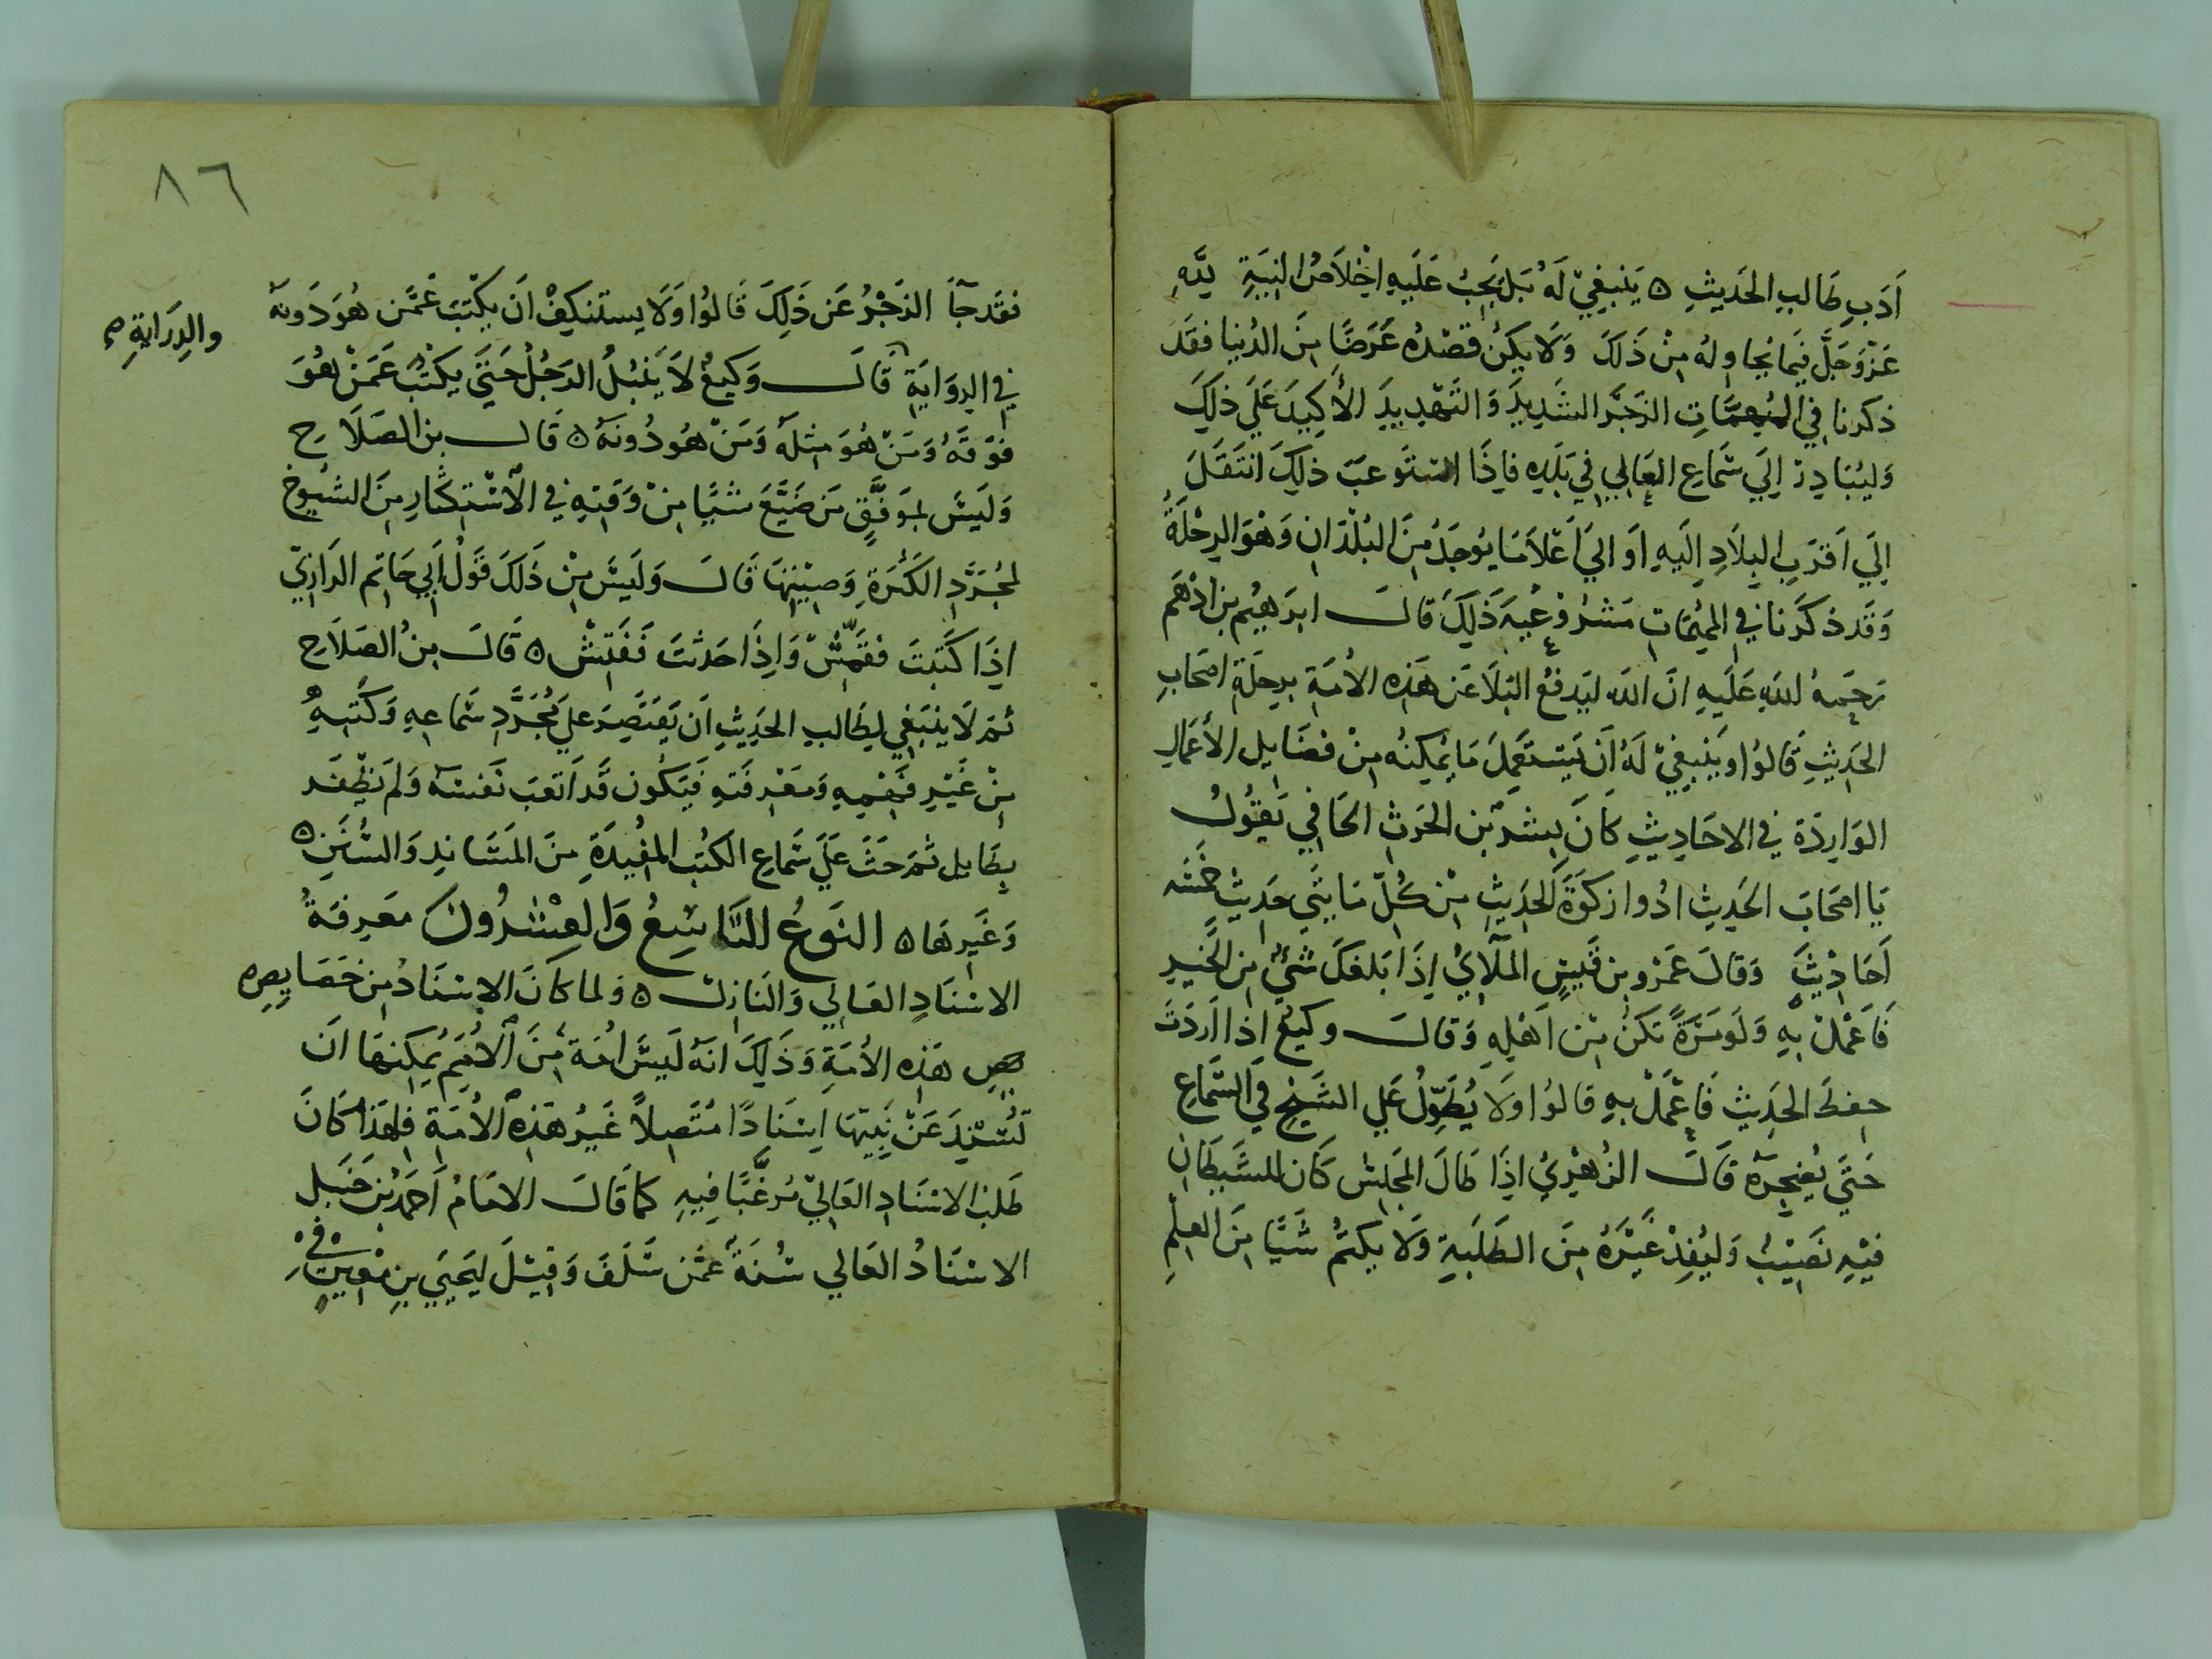 اَدَبِ طَالبِ الحَديثِ ٥ يَنبغِيْ لَهُ بَل يَجِبُ عَلَيهِ اِخْلاَصُ النِيَةِ لِلَّهِ
عَزَّوَجَلَّ فيمَا يُحاوِلهُ مِنْ ذَلَكَ وَلَا يكنُ قصْدُه عَرَضًا مِنَ الدُنيا فقَدَ
ذكرنا في المُهِمَّاتِ الزَجَرَ الشَدِيدَ وَالتَهْدِيدَ الأكِيدَ عَلَي ذلِكَ
وَليُبَادِرْ اِلَي سَمَاعِ العَالِي فِي بَلَدِهِ فاِذَا استَوعبَ ذلِكَ انتَقَلَ
اِلَي اَقرَبِ البِلَادِ اِلَيهِ اَو اليَ اَعْلَا مَا يُوجَدُ مِنَ البُلْدَانِ وَهْوَ الرِحْلَةُ
وَقَد ذكَرنا في المهِمَاتِ مَشرُوْعيهَ ذَلِكَ قالَ ابرَهيْم بن ادْهَم
رَحِمهُ اللهِ عَلَيهِ انَ اللهَ ليَدفعُ البَلَا عَن هَذِه الأُمَةِ برِحلَةِ اصَحابِ
الحَدِيثِ قَالوُا وَيَنْبغيْ لَهُ اَن يَستَعمِلَ مَا يُمكِنُه مِنْ فضَايل الأعَمالِ
الوَارِدَة في الاحَادِيثِ كانَ بِشرُ بْن الحَرثِ الحَافِي يَقوُلُ
يَا اصَحَابَ الحَدِيثِ ادُوا زكوَةَ الحَدِيثِ مِن كُلّ مَايتَي حَدِيثٍ خمَسَه
اَحَادِيْثَ وَقالَ عَمَرو بن قَيسٍ المُلَآئِيُّ اِذَا بَلَغكَ شَيٌْ مِن الخَيرِ
فَاعْمَلْ بِهِ وَلَو مَرَةً تكنْ مِن اَهْلِهِ وَقالَ وكيعٌ اذا اَردْتَ
حِفظَ الحَدِيثِ فَاعْمَلْ بِهِ قالوُا وَلَا يُطَوِّلُ عَلي الشَيْخِ في السَمَاعِ
حَتَي يُضجِرَهُ قَالَ الزُهْرِيُ اِذَا طَالَ المَجلِسُ كَان للشَيطَانِ
فيْهِ نَصِيْبٌ وَليُفِدْ غَيْرَهُ مِنَ الطَلَبَةِ وَلَا يكتمُ شَيًا مِنَ العِلْمِ
٨٦
فقَد جَآ الزَجْرُ عَن ذَلِكَ قَالوُا وَلَا يستَنكِفْ انَ يكتبَ عَمَّن هُوَ دَونهَ
في الرِوَايَةِ قَالَ وَكيعٌ لاَ يَنبُلُ الرَجُلُ حَتيَ يكتُبَ عَمَنْ هُوَ
والدِرَايةِ صح
فوقَهُ وَمَنْ هُوَ مِثلَهُ وَمَنْ هُو دُونَهُ ٥ قَالَ بن الصَلَاحِ
وَليَسَ بموَفَّقٍ مَن ضَيَّعَ شَيًا مِنْ وَقتِهِ في الاسْتِكثَارِ مِنَ الشيُوخ
لمجُرَدِ الكَثرَةِ وَصِيْتِهَا قَالَ وَلَيسَ مِنْ ذَلكَ قَوْلُ اَبي حَاتِم الرَازِيِّ
اِذَا كَتَبتَ فقَمِّشْ وَاِذَا حَدَثتَ فَفَتِّشْ ٥ قَالَ بِنُ الصَلَاحِ
ثمَ لَا ينبَغي لِطَالبِ الحَدِيثِ اَن يَقتَصِرَ عَليَ مُجُرَّدِ سَمَاعِهِ وَكَتبِهِ
مِنْ غَيرِ فَهمِهِ وَمَعْرِفَتهِ فَيَكُون قَد اَتعَبَ نَفسَهُ وَلَم يَظْفَر
بِطَايل ثمَ حَثَ عَلَي سَمَاعِ الكتُبِ المُفيدَةِ مِنَ المَسَانِدِ وَالسُنَنِ ٥
وَغَيرِهَا ٥ النَوعُ التَاسِعُ وَالعِشرُونَ مَعرِفَةُ
الاسْنَادِ العَالِي وَالنَازِل ٥ وَلما كانَ الاِسْنَادُ مِن خصَايِصِ
هَذِه الأُمَةِ وَذَلِكَ انَهُ لَيسَ اُمَةٌ مِنَ الاُمَمِ يُمكِنهَا اَن
تُسْنِدَ عَنْ نَبِيّهَا اِسْنَادًا مُتَصِلاً غَيرُ هَذِه الأُمَةِ فلِهَذا كَانَ
طَلبُ الاسْنَادِ العَاليِ مُرغَّبًا فِيهِ كَما قَالَ الامَامُ اَحمَدُ بْن حَنبَلٍ
الاسْنَادُ العَالي سُنَةٌ عَمَّن سَلَفَ وَقيْلَ ليَحيَي بنِ مُعِينٍ فيْ